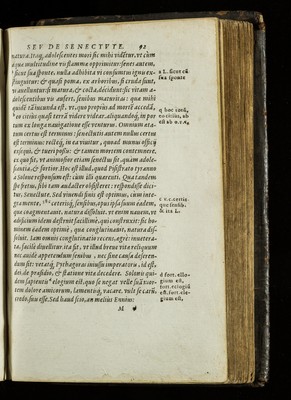 SEV DE SENECTVTE. 92
natura. Itaq; adolescentes mori sic mihi videtur, vt cùm
aquæ multitudine vis flammæ opprimitur: senes autem,
sicut sua sponte, nulla adhibita vi consumtus ignis ex-
stinguitur: & quasi poma ex arboribus, si cruda sunt,
vi auelluntur: si matura, & cocta, decidunt: sic vitam a-
dolescentibus vis aufert, senibus maturitas: quæ mihi
quidè tã iucunda est, vt, quo propiùs ad mortẽ accedã,
quasi terrã videre videar, aliquandoq; in por
tum ex longa nauigatione esse venturus. Omnium æta-
tum certus est terminus: senectutis autem nullus certus
est terminus: rectéq; in ea viuitur, quoad munus officij
exsequi, & tueri possis: & tamen mortem contemnere.
ex quo fit, vt animosior etiam senectus sit, quàm adole-
scentia, & fortior. Hoc est illud, quod Pisistrato tyranno
à Solone responsum est: cùm illi quærenti, Qua tandem
spe fretus, sibi tam audacter obsisteret: respondisse dici-
tur, Senectute. Sed viuendi finis est optimus, cùm inte-
gra mente, ceterisq; sensibus, opus ipsa suum eadem,
quæ coagmentauit, natura dissoluit. vt enim nauem, vt
ædificium idem destruit facillimè, qui construxit: sic ho-
minem eadem optimè, quæ conglutinauit, natura dis-
soluit. Iam omnis conglutinatio recens, ægrè: inuetera-
ta, facile diuellitur. ita fit, vt illud breue vitæ reliquum
nec auidè appetendum senibus, nec sine causa deseren-
dum sit: vetatq; Pythagoras iniussu imperatoris, id est,
dei, de præsidio, & statione vitæ decedere. Solonis qui-
dem sapientis elogium est, quo se negat velle suã mor-
tem dolore amicorum, lamentisq; vacare. vult se carũ,
credo, suis esse. Sed haud scio, an meliùs Ennius:
M
sua sponte